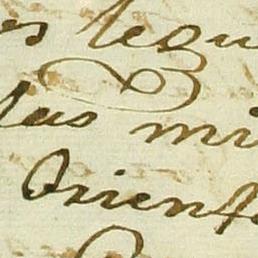 es legu
las mi
Orient